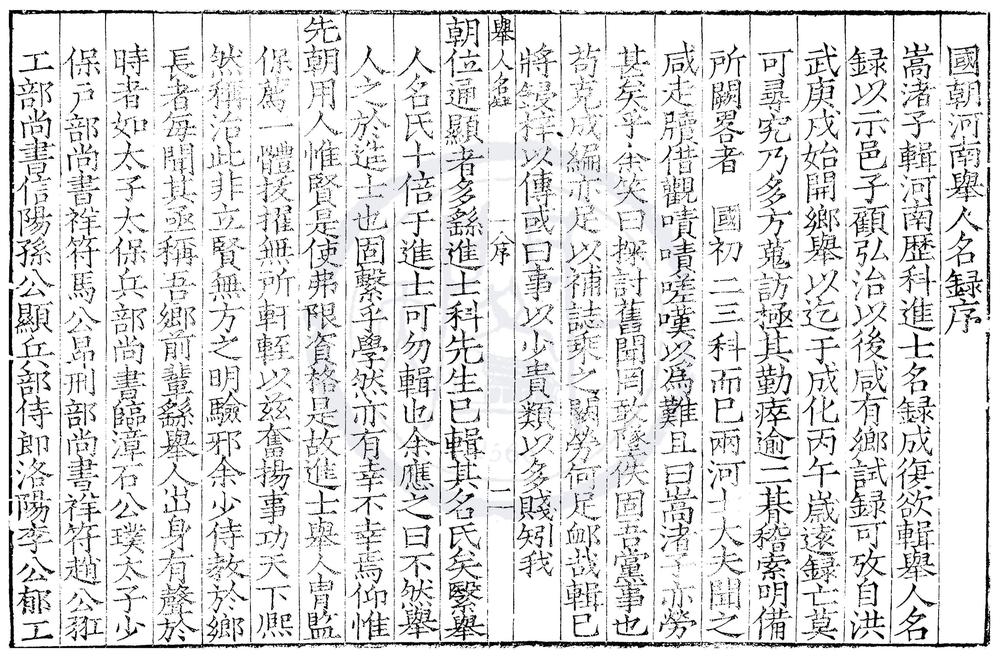 國朝河南舉人名錄序
嵩渚子輯河南歷科進士名錄成復欲輯舉人名
錄以示邑子顧弘治以後咸有鄉試錄可攷自洪
武庚戌始開鄉舉以迄于成化丙午歲遠錄亡莫
可尋究乃多方蒐訪極其勤瘁逾二朞稽索明備
所闕畧者　國初二三科而已兩河士大夫聞之
咸走牘借觀嘖嘖嗟嘆以為難且曰嵩渚子亦勞
甚矣乎余笑曰探討舊聞罔致墜佚固吾黨事也
苟克成編亦足以補誌乘之闕勞何足卹哉輯已
將鋟梓以傳或曰事以少貴類以多賤矧我
舉人名錄
序
二
朝位通顯者多繇進士科先生已輯其名氏矣繄舉
人名氏十倍于進士可勿輯也余應之曰不然舉
人之於進士也固繫乎學然亦有幸不幸焉仰惟
先朝用人惟賢是使弗限資格是故進士舉人胄監
保薦一體拔擢無所軒輊以兹奮揚事功天下熈
然稱治此非立賢無方之明驗邪余少侍教於鄉
長者每聞其亟稱吾鄉前輩繇舉人出身有聲於
時者如太子太保兵部尚書臨漳石公璞太子少
保戶部尚書祥符馬公昂刑部尚書祥符趙公羾
工部尚書信陽孫公顯兵部侍郎洛陽李公郁工